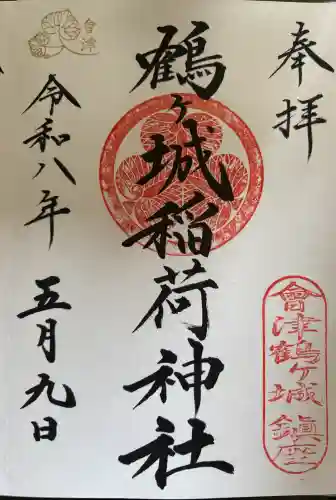 奉拝
會津鶴ヶ城鎮座
鶴ヶ城稲荷神社
會津
令和八年 五月九日